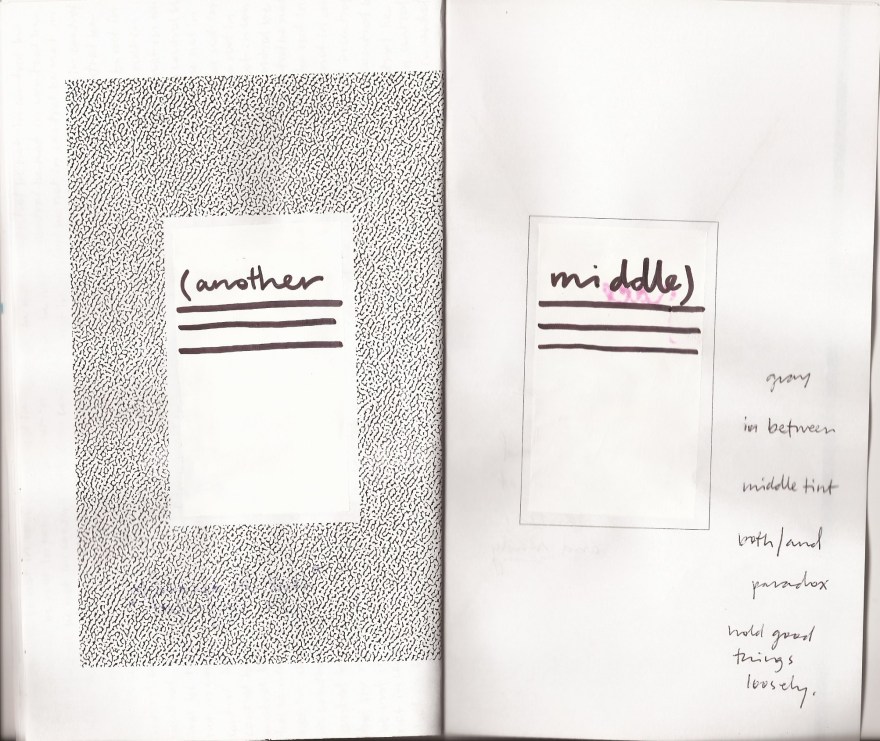 (another
middle)
gray
in between
middle tint
both/and
paradox
hold good
things
loosely.